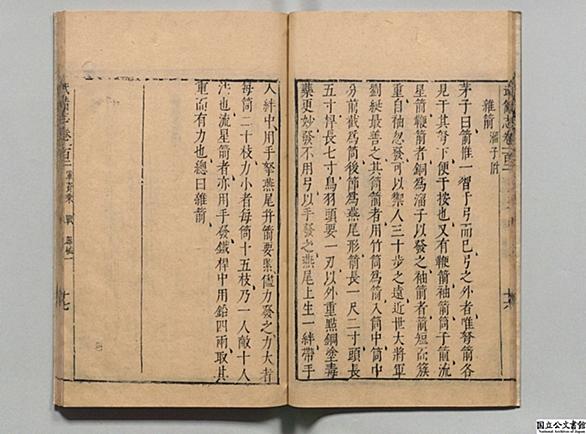 武備志卷一百二
雜箭 溜子附
茅子曰箭惟一習于弓而已弓之外者唯弩箭各
見于其弩下便于按也又有鞭箭袖箭筒子箭流
星箭鞭箭者銅爲溜子以發之袖箭者箭短而簇
重自袖忽發可以禦人三十步之遠近世大將軍
劉綎最善之其筒箭者用竹筒爲箭入筒中筒中
分前截爲筒後節爲燕尾形箭長一尺二寸頭長
五寸桿長七寸鳥羽頭要一刃以外重點銅塗毒
藥更妙發不用弓以手發之燕尾上生一絆帶手
人絆中用手拏燕尾并箭要緊儘力發之力大者
每筒二十枝力小者每筒十五枝乃一人敵十人
法也流星箭者亦用手發鐵桿中用鉛四兩取其
重而有力也總曰雜箭
武備志卷一百二 軍資乘 戰 器械一 十七
国立公文書館
National Archives of Japan